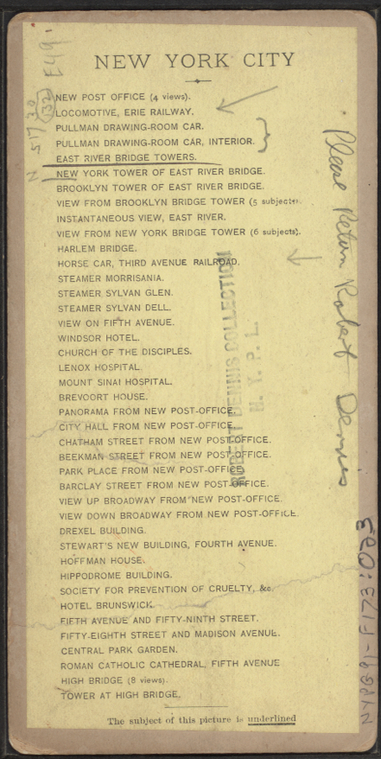 NEW YORK CITY
NEW POST OFFICE (4 views).
LOCOMOTIVE, ERIE RAILWAY.
PULLMAN DRAWING-ROOM CAR.
PULLMAN DRAWING-ROOM CAR, INTERIOR.
EAST RIVER BRIDGE TOWERS.
NEW YORK TOWER OF EAST RIVER BRIDGE.
BROOKLYN TOWER OF EAST RIVER BRIDGE.
VIEW FROM BROOKLYN BRIDGE TOWER (5 subjects).
INSTANTANEOUS VIEW, EAST RIVER.
VIEW FROM NEW YORK BRIDGE TOWER (6 subjects).
HARLEM BRIDGE.
HORSE CAR, THIRD AVENUE RAILROAD.
STEAMER MORRISANIA.
STEAMER SYLVAN GLEN.
STEAMER SYLVAN DELL.
VIEW ON FIFTH AVENUE.
WINDSOR HOTEL.
CHURCH OF THE DISCIPLES.
LENOX HOSPITAL.
MOUNT SINAI HOSPITAL.
BREVOORT HOUSE.
PANORAMA FROM NEW POST-OFFICE.
CITY HALL FROM NEW POST-OFFICE.
CHATHAM STREET FROM NEW POST-OFFICE.
BEEKMAN STREET FROM NEW POST-OFFICE.
PARK PLACE FROM NEW POST-OFFICE
BARCLAY STREET FROM NEW POST-OFFICE.
VIEW UP BROADWAY FROM NEW POST-OFFICE.
VIEW DOWN BROADWAY FROM NEW POST-OFFICE.
DREXEL BUILDING.
STEWART'S NEW BUILDING, FOURTH AVENUE.
HOFFMAN HOUSE.
HIPPODROME BUILDING.
SOCIETY FOR PREVENTION OF CRUELTY, &c.
HOTEL BRUNSWICK.
FIFTH AVENUE AND FIFTY-NINTH STREET.
FIFTY-EIGHTH STREET AND MADISON AVENUE.
CENTRAL PARK GARDEN.
ROMAN CATHOLIC CATHEDRAL, FIFTH AVENUE
HIGH BRIDGE (8 views).
TOWER AT HIGH BRIDGE.
The subject of this picture is underlined
Please Return Robert Dennis
ROBERT DENNIS COLLECTION
N. Y. P. L.
NYPG91-F173:023